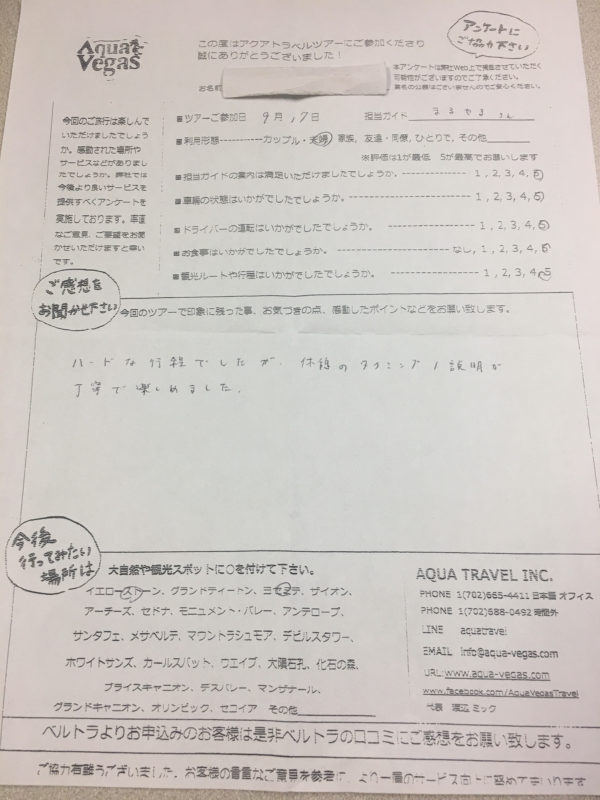 Aqua Vegas
この度はアクアトラベルツアーにご参加くださり
誠にありがとうございました!
アンケートに
ご協力下さい
本アンケートは弊社Web上で掲載させていただく
可能性がございますのでご了承ください。
お名前
今回のご旅行は楽しんで
いただけましたでしょう
か。感動された場所や
サービスなどがありまし
たでしょうか。弊社では
今後より良いサービスを
提供すべくアンケートを
実施しております。率直
なご意見、ご要望をお聞
かせいただけますと幸い
です。
■ツアーご参加日 9月17日 担当ガイド まるやま さん
■利用形態----------カップル・夫婦, 家族, 友達・同僚, ひとりで, その他
※評価は1が最低 5が最高でお願いします
■担当ガイドの案内は満足いただけましたでしょうか。------------- 1, 2, 3, 4, 5
■車輌の状態はいかがでしたでしょうか。---------------------- 1, 2, 3, 4, 5
■ドライバーの運転はいかがでしたでしょうか。------------------ 1, 2, 3, 4, 5
■お食事はいかがでしたでしょうか。---------------------- なし, 1, 2, 3, 4, 5
■観光ルートや行程はいかがでしたでしょうか。---------------- 1, 2, 3, 4, 5
ご感想を
お聞かせ下さい
今回のツアーで印象に残った事、お気づきの点、感動したポイントなどをお願い致します。
ハードな行程でしたが、休憩のタイミング/説明が
丁寧で楽しめました。
今後
行ってみたい
場所は
大自然や観光スポットに○を付けて下さい。
イエローストーン、グランドティートン、ヨセミテ、ザイオン、
アーチーズ、セドナ、モニュメント・バレー、アンテロープ、
サンタフェ、メサベルデ、マウントラシュモア、デビルスタワー、
ホワイトサンズ、カールスバット、ウエイブ、大隕石孔、化石の森、
ブライスキャニオン、デスバレー、マンザナール、
グランドキャニオン、オリンピック、セコイア その他
AQUA TRAVEL INC.
PHONE 1(702)665-4411 日本語 オフィス
PHONE 1(702)688-0492 時間外
LINE aquatravel
EMAIL info@aqua-vegas.com
URL:www.aqua-vegas.com
www.facebook.com/AquaVegasTravel
代表 渡辺 ミック
ベルトラよりお申込みのお客様は是非ベルトラの口コミにご感想をお願い致します。
ご協力有難うございました。お客様の貴重なご意見を参考に、より一層のサービス向上に努めてまいります